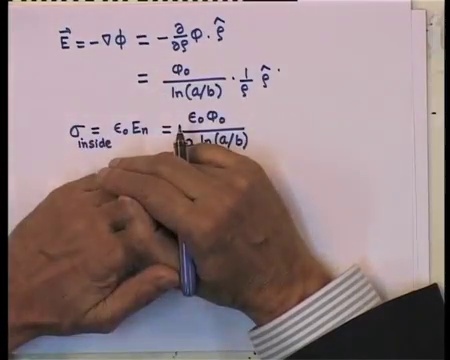 E⃗ = -∇ϕ = - ∂/∂ρ ϕ · ρ̂
= ϕ₀ / ln(a/b) · 1/ρ ρ̂ ·
σ inside = ϵ₀ Eₙ = ϵ₀ϕ₀ / ln(a/b)